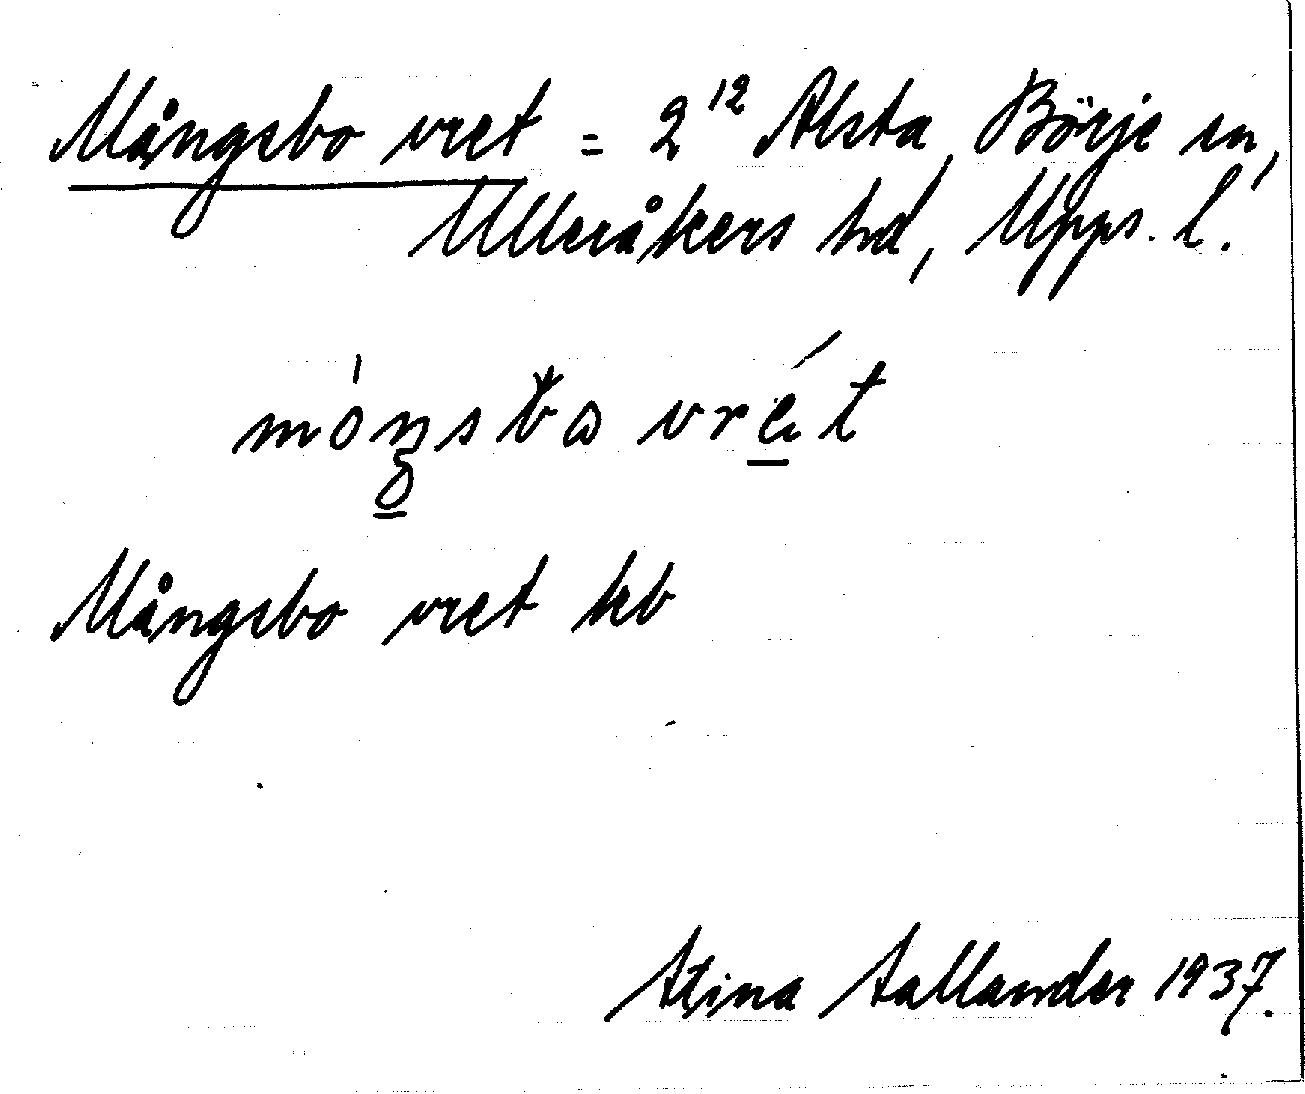 Mångsbo vret = 2¹² Alsta, Börje sn,
Ulleråkers hd, Upps. l.
Mångsbo vret kb
Stina Sallander 1937.